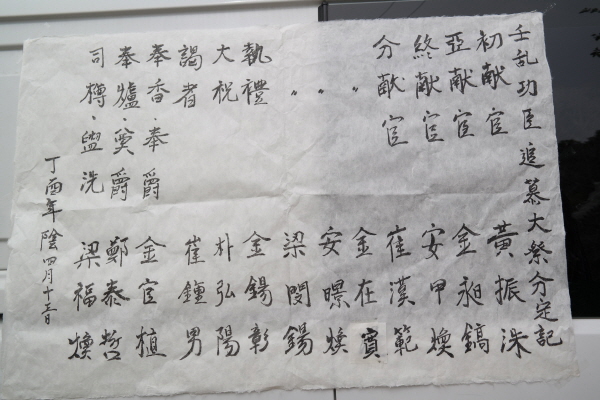 壬乱功臣追慕大祭分定記
初献官 黃振洙
亞献官 金昶鎬
終献官 安甲煥
分献官 崔漢範
〃 金在實
〃 安暻煥
〃 梁閔錫
執禮 金錫彰
大祝 朴弘陽
謁者 崔鍾男
奉香·奉爵 金官植
奉爐·奠爵 鄭泰哲
司樽·盥洗 梁福煥
丁酉年陰四月十三日